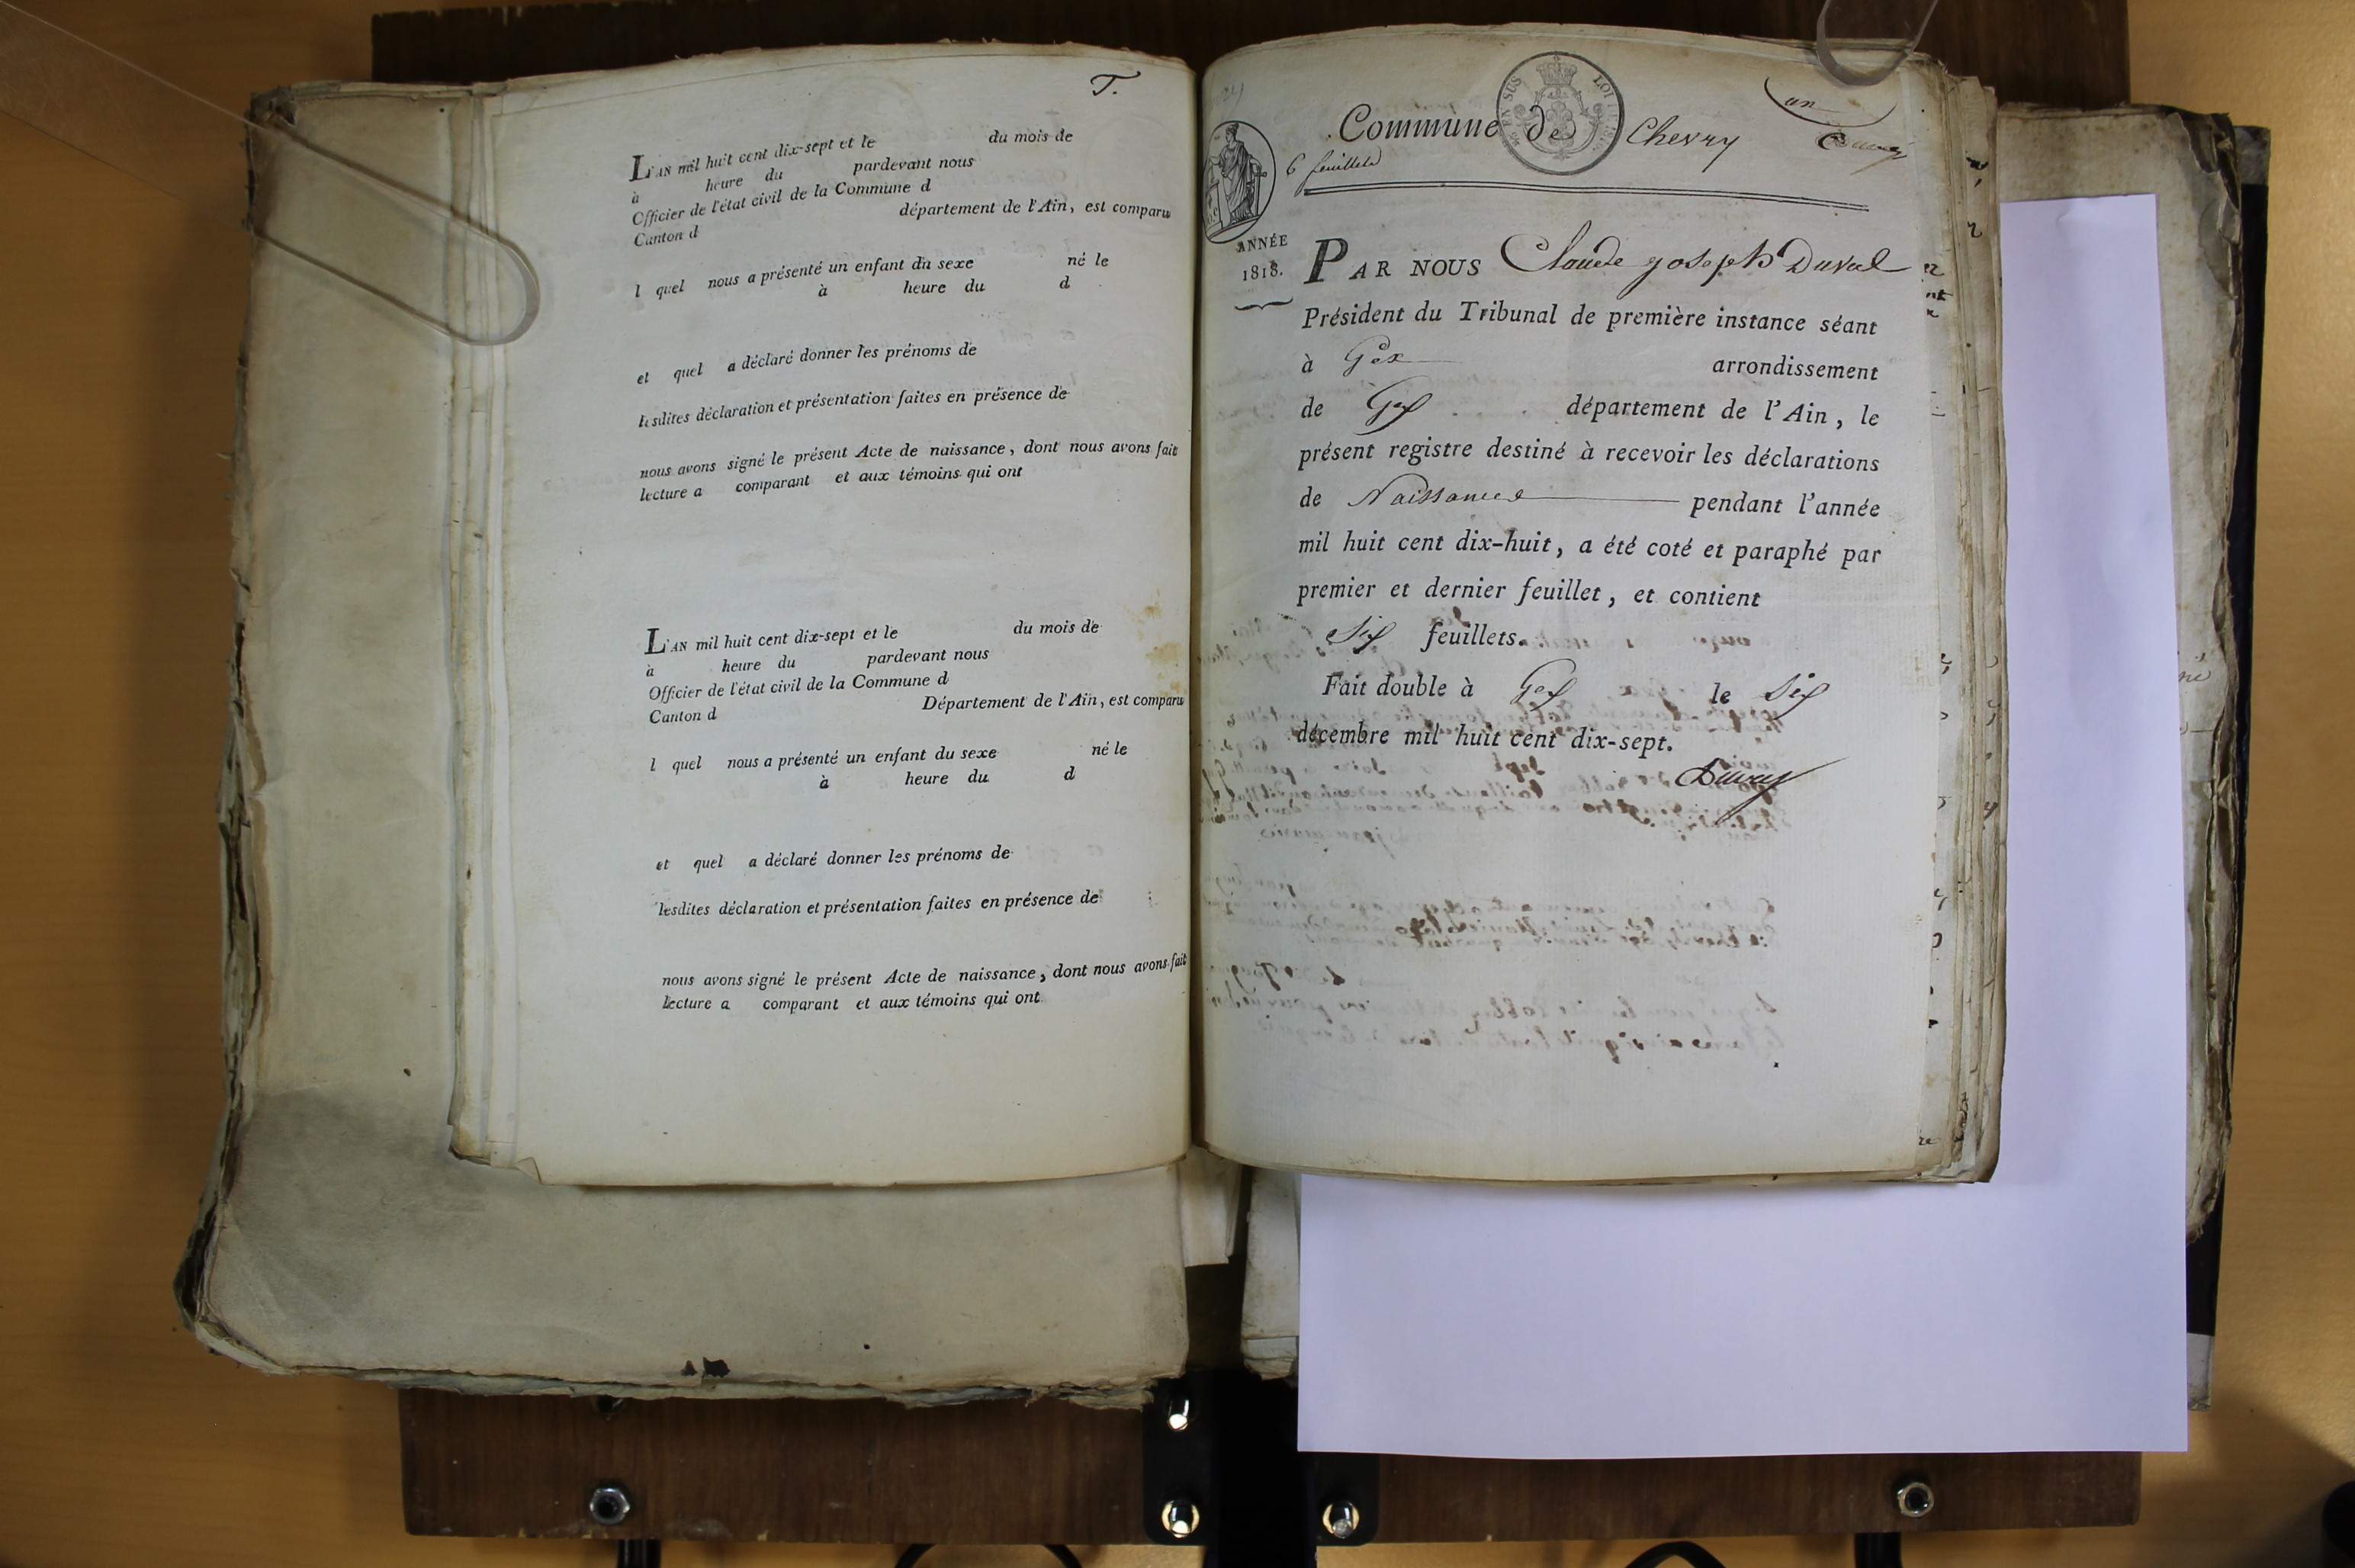 T.
L'AN mil huit cent dix-sept et le du mois de
à heure du pardevant nous
Officier de l'état civil de la Commune d
Canton d département de l'Ain, est comparu
l quel nous a présenté un enfant du sexe né le
à heure du d
et quel a déclaré donner les prénoms de
lesdites déclaration et présentation faites en présence de
nous avons signé le présent Acte de naissance, dont nous avons fait
lecture a comparant et aux témoins qui ont
L'AN mil huit cent dix-sept et le du mois de
à heure du pardevant nous
Officier de l'état civil de la Commune d
Canton d Département de l'Ain, est comparu
l quel nous a présenté un enfant du sexe né le
à heure du d
et quel a déclaré donner les prénoms de
lesdites déclaration et présentation faites en présence de
nous avons signé le présent Acte de naissance, dont nous avons fait
lecture a comparant et aux témoins qui ont
un
Commune de Chevry
6 feuillets
EN SUS LOI
ANNÉE
1818.
PAR NOUS Claude joseph Duval
Président du Tribunal de première instance séant
à Gex arrondissement
de Gex département de l'Ain, le
présent registre destiné à recevoir les déclarations
de Naissance pendant l'année
mil huit cent dix-huit, a été coté et paraphé par
premier et dernier feuillet, et contient
Six feuillets.
Fait double à Gex le Six
décembre mil huit cent dix-sept.
Duval